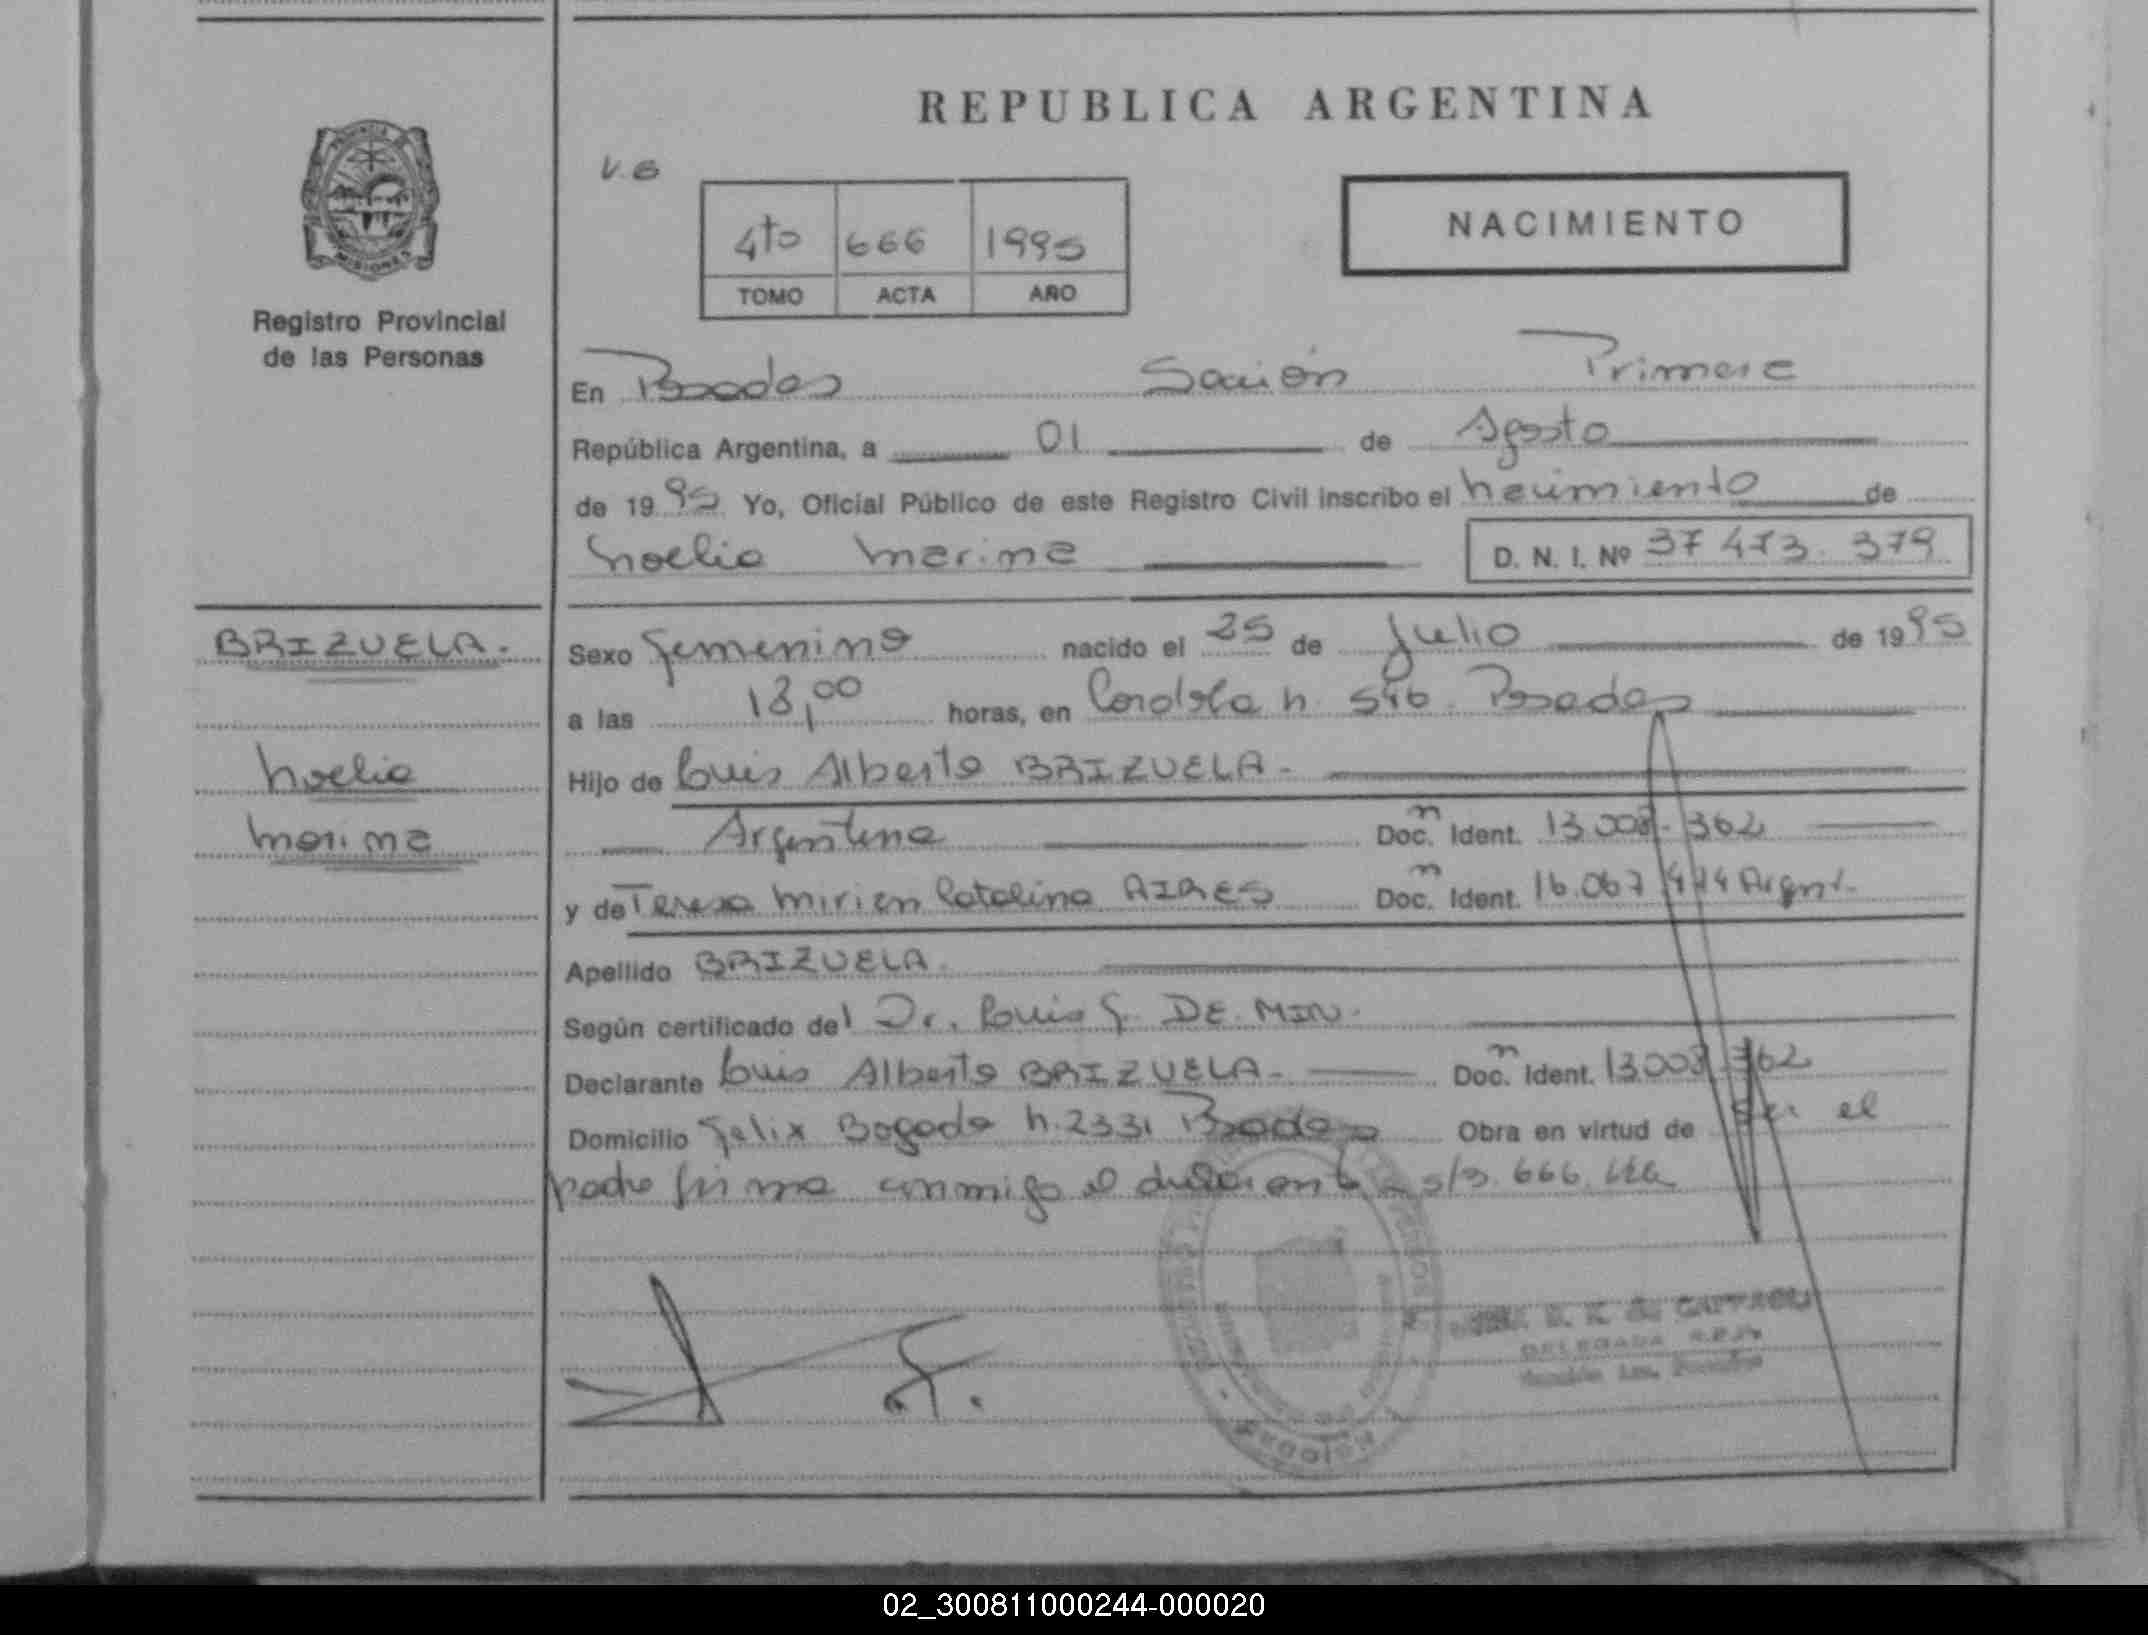 REPUBLICA ARGENTINA
PROVINCIA
MISIONES
Registro Provincial
de las Personas
V.B
4to 666 1995
TOMO ACTA AÑO
NACIMIENTO
En Posadas Sección Primera
República Argentina, a 01 de Agosto
de 1995 Yo, Oficial Público de este Registro Civil inscribo el nacimiento de
Noelia Marina D. N. I. Nº 37 473. 379
BRIZUELA.
Noelia
Marina
Sexo femenino nacido el 25 de Julio de 1995
a las 18,00 horas, en Cordoba n. 546. Posadas
Hijo de Luis Alberto BRIZUELA.
Argentina Doc. n Ident. 13.008.362
y de Teresa Mirien Catalina AIRES Doc. n Ident. 16.067 Argent.
Apellido BRIZUELA.
Según certificado del Dr. Luis G. DE MIN.
Declarante Luis Alberto BRIZUELA. Doc. n Ident. 13.008.362
Domicilio Felix Bogado n. 2331 Posadas Obra en virtud de ser el
padre firma conmigo el declarante s/s. 666. Vta
DELEGADA R.P.P.
Sección 1ra. Posadas
02_300811000244-000020